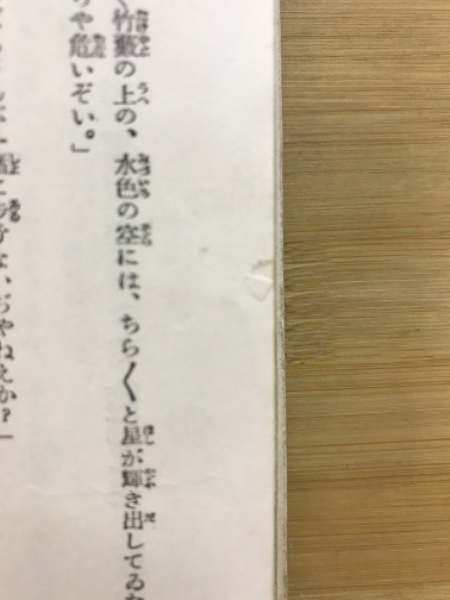 竹藪の上の、水色の空には、ちら〱と星が輝き出してゐ
や危いぞい。」
ない、ぢやねえか？」